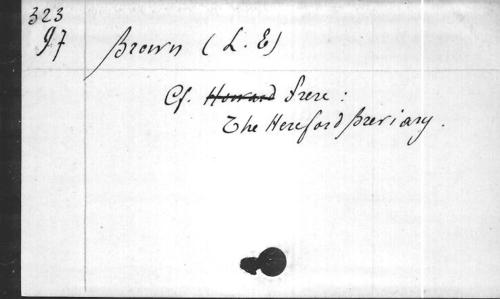 323
97
Brown (L. E)
Cf. Howard Frere :
The Hereford Breviary.